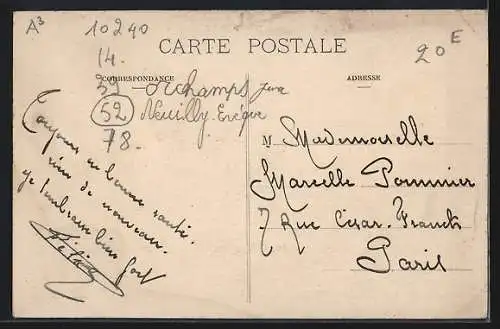 A³
10240
14.
39
52
78.
20 E
CARTE POSTALE
CORRESPONDANCE
ADRESSE
Orchamps Jura
Neuilly-Evêque
Toujours en bonne santé.
rien de nouveau.
Je t'embrasse bien fort
M Mademoiselle
Marcelle Pommier
7 Rue César-Franck
Paris